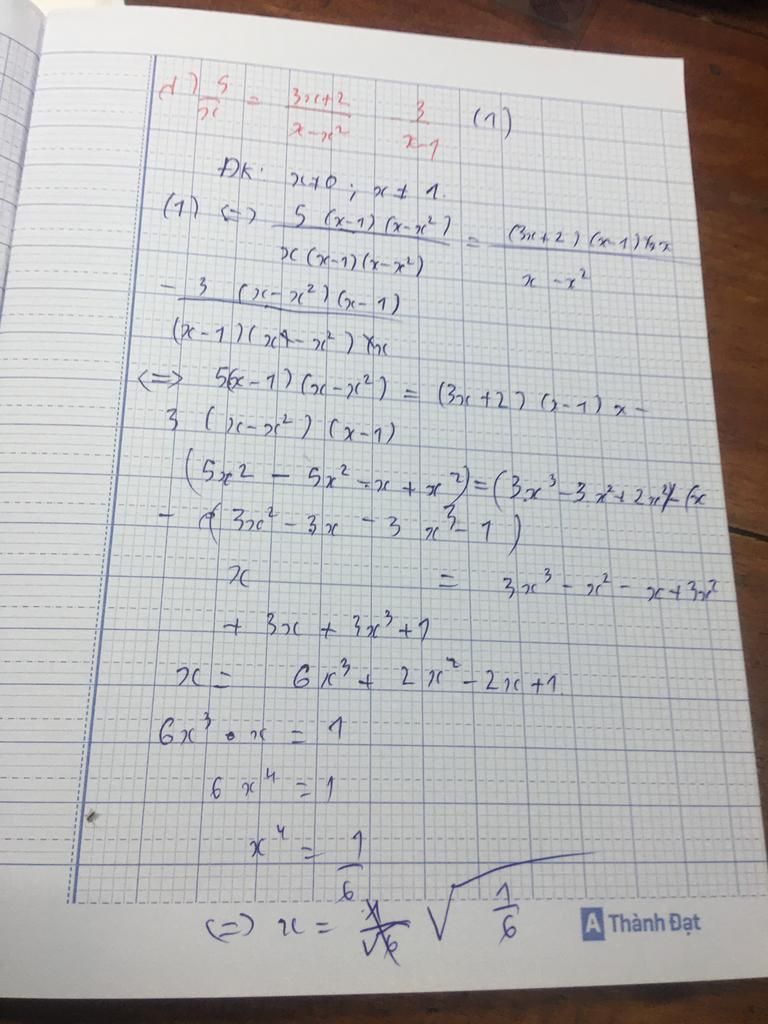 d) 5/x = 3x+2/x-x² 3/x-1 (1)
ĐK: x≠0; x≠1.
(1) <=> 5(x-1)(x-x²)/x(x-1)(x-x²) = (3x+2)(x-1)x/x-x²
- 3(x-x²)(x-1)/(x-1)(x-x²)x
<=> 5(x-1)(x-x²) = (3x+2)(x-1)x -
3(x-x²)(x-1)
(5x² - 5x² - x + x²) = (3x³ - 3x² + 2x²) - (x
- (3x² - 3x - 3x³ - 1)
x = 3x³ - x² - x + 3x²
+ 3x + 3x³ + 1
x = 6x³ + 2x² - 2x + 1
6x³ . x = 1
6x⁴ = 1
x⁴ = 1/6
(=) x = √1/6
A Thành Đạt